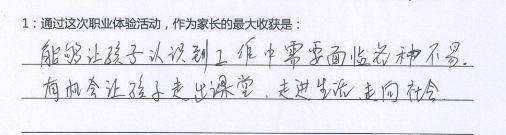 1：通过这次职业体验活动，作为家长的最大收获是：
能够让孩子认识到工作中需要面临各种不易。
有机会让孩子走出课堂，走进生活，走向社会